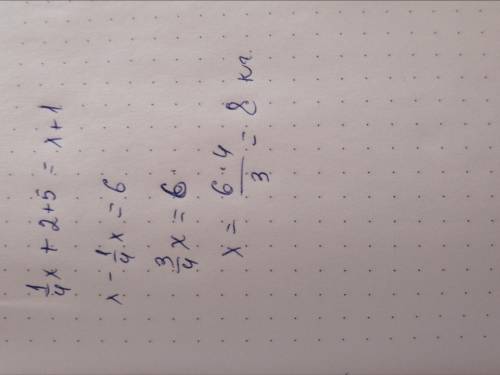 1/4 x + 2 + 5 = x + 1
x - 1/4 x = 6
3/4 x = 6
x = 6·4/3 = 8 кг